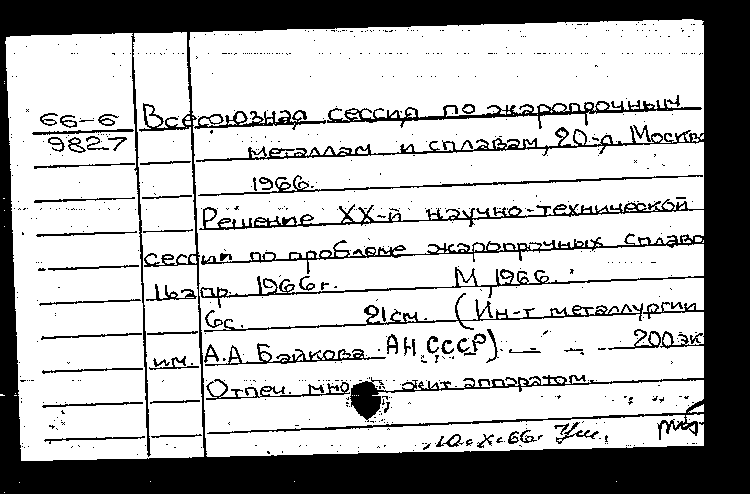 66-6 Всесоюзная сессия по жаропрочным
9827 металлам и сплавам, 20-я. Москва
1966.
Решение XX-й научно-технической
сессии по проблеме жаропрочных сплаво
апр. 1966г. М, 1966.
6с. 21см. (Ин-т металлургии
им. А.А. Байкова АН СССР) 200 эк
Отпеч. мно жит. аппаратом.
10-X-66.